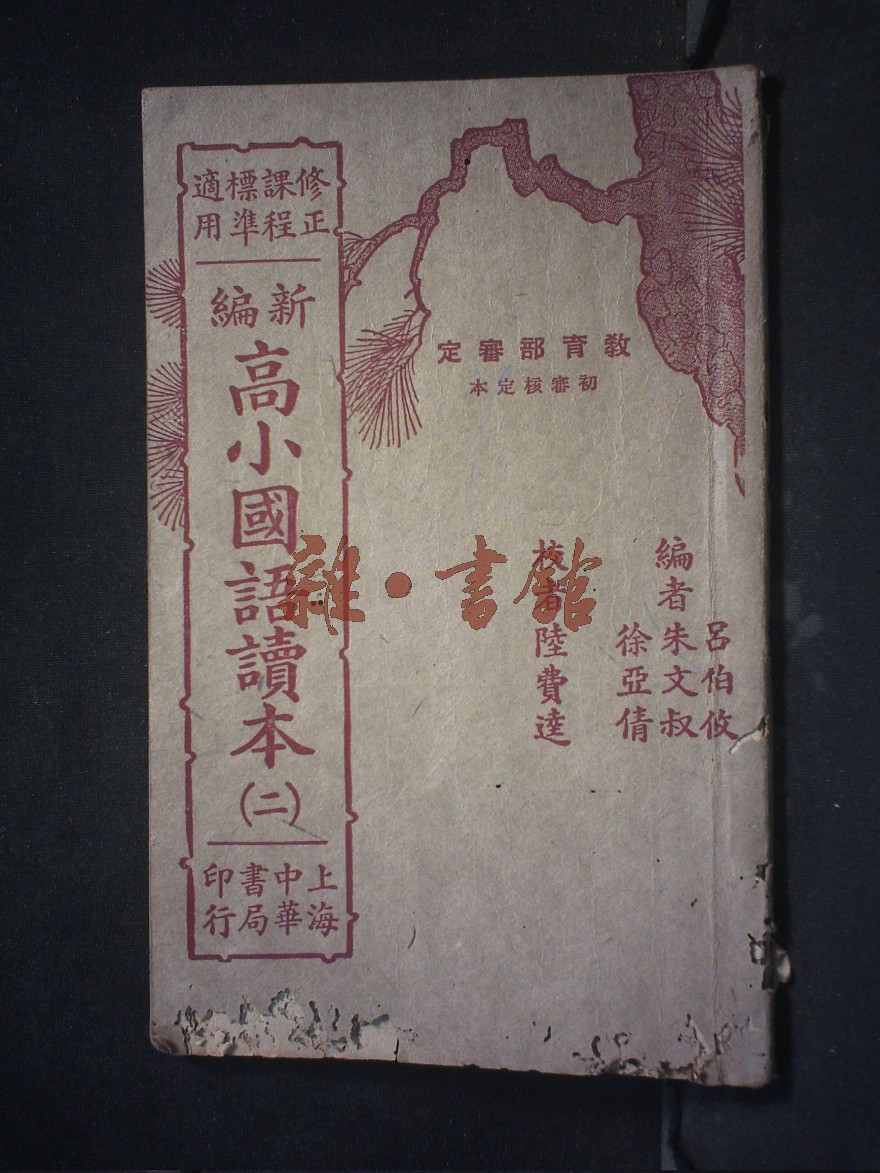 修正課程標準適用
新編
高小國語讀本
(二)
上海中華書局印行
教育部審定
初審核定本
編者
呂伯攸
朱文叔
徐亞倩
校者 陸費逵
雜·書館